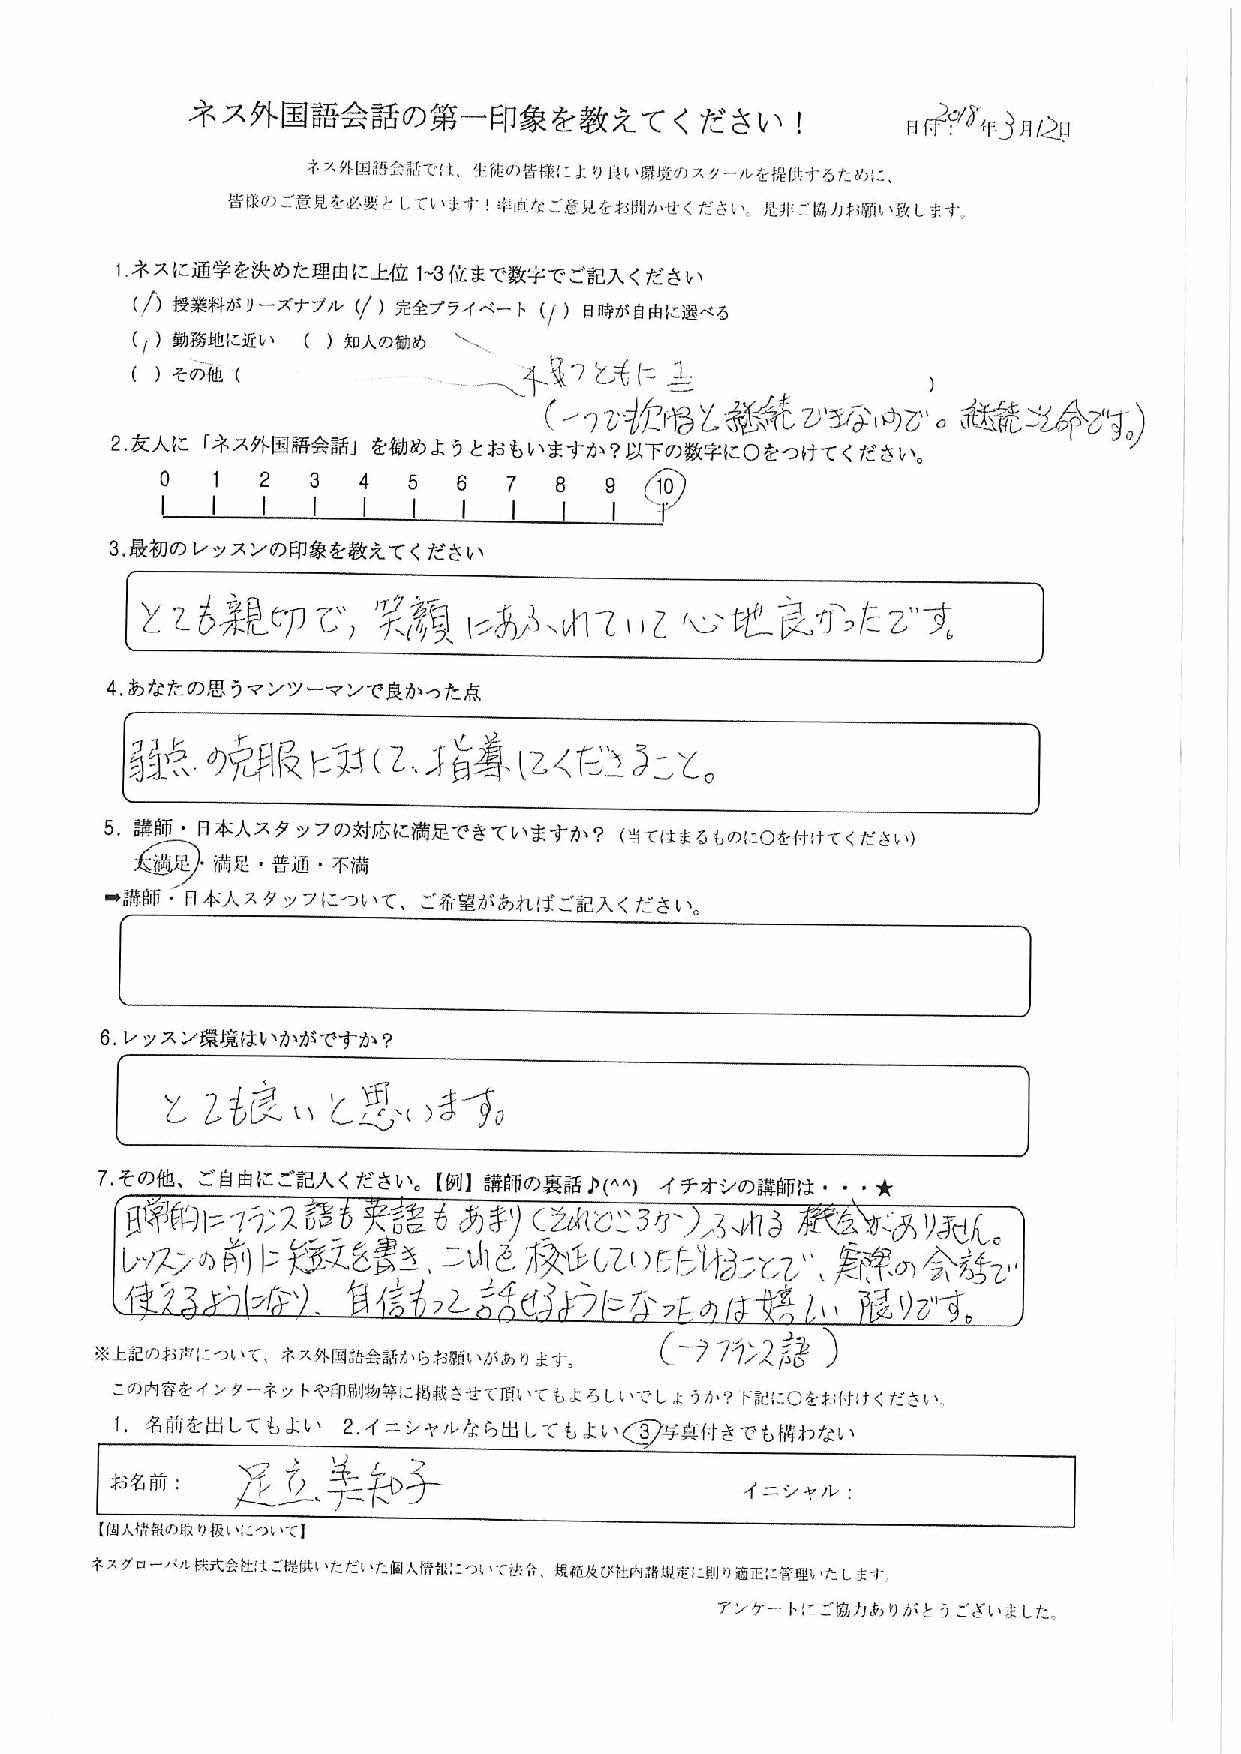 ネス外国語会話の第一印象を教えてください！
日付：2018年3月12日
ネス外国語会話では、生徒の皆様により良い環境のスクールを提供するために、
皆様のご意見を必要としています！率直なご意見をお聞かせください。是非ご協力お願い致します。
1.ネスに通学を決めた理由に上位1~3位まで数字でご記入ください
(1)授業料がリーズナブル(1)完全プライベート(1)日時が自由に選べる
(1)勤務地に近い ( )知人の勧め
( )その他( 4つともに1 )
(一つでも欠けると継続できないので。継続こそ命です。)
2.友人に「ネス外国語会話」を勧めようとおもいますか？以下の数字に○をつけてください。
0 1 2 3 4 5 6 7 8 9 10
3.最初のレッスンの印象を教えてください
とても親切で,笑顔にあふれていて心地良かったです。
4.あなたの思うマンツーマンで良かった点
弱点の克服に対して、指導してくださること。
5. 講師・日本人スタッフの対応に満足できていますか？(当てはまるものに○を付けてください)
大満足・満足・普通・不満
➡講師・日本人スタッフについて、ご希望があればご記入ください。
6.レッスン環境はいかがですか？
とても良いと思います。
7.その他、ご自由にご記入ください。【例】講師の裏話♪(^^) イチオシの講師は・・・★
日常的にフランス語も英語もあまり(それどころか)ふれる機会がありません。
レッスンの前に短文を書き、これを校正していただけることで、実際の会話で
使えるようになり、自信もって話せるようになったのは嬉しい限りです。
(→フランス語)
※上記のお声について、ネス外国語会話からお願いがあります。
この内容をインターネットや印刷物等に掲載させて頂いてもよろしいでしょうか？下記に○をお付けください。
1. 名前を出してもよい 2.イニシャルなら出してもよい 3写真付きでも構わない
お名前： 足立美知子 イニシャル：
【個人情報の取り扱いについて】
ネスグローバル株式会社はご提供いただいた個人情報について法令、規範及び社内諸規定に則り適正に管理いたします。
アンケートにご協力ありがとうございました。